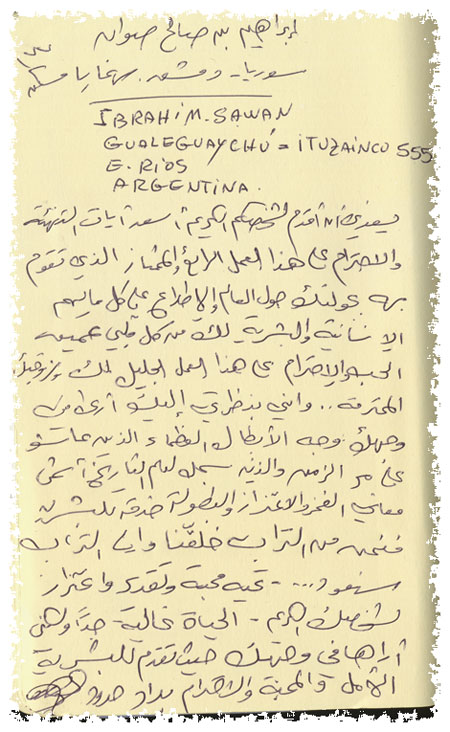 إبراهيم بن صالح صوان
سوريا - دمشق
IBRAHIM. SAWAN
GUALEGUAYCHÚ = ITUZAINCO 555
E. RIOS
ARGENTINA.
يسعدني أن أقدم لشخصكم الكريم أسعد آيات التهنئة
والاحترام على هذا العمل الرائع والممتاز الذي تقوم
به بجولتك حول العالم والاطلاع على كل ما يهم
الإنسانية والبشرية لك من كل قلبي عميق
الحب والاحترام على هذا العمل الجليل لك ولزوجتك
المحترمة .. وإنني بنظرتي إليك أرى من
وجهك وجه الأبطال العظماء الذين عاشو
على مر الزمن والذين سجل لهم التاريخ أسمى
معاني الفخر والاعتزاز والبطولة خدمة للبشرية
فنحن من التراب خلقنا وإلى التراب
سنعود ... - تحية محبة وتقدير واعتزاز
لشخصك الكريم - الحياة غالية جداً ولكني
أراها في وجهك حيث تقدم للبشرية
الأمل والمحبة والاحترام بلا حدود